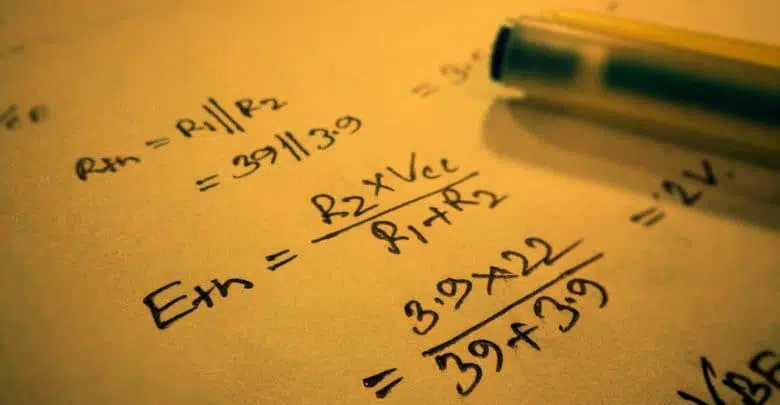 Rth = R1||R2
= 39||3.9
= 3.
Eth = R2 x Vcc
R1 + R2
= 3.9 x 22
39 + 3.9
= 2V.
VBE